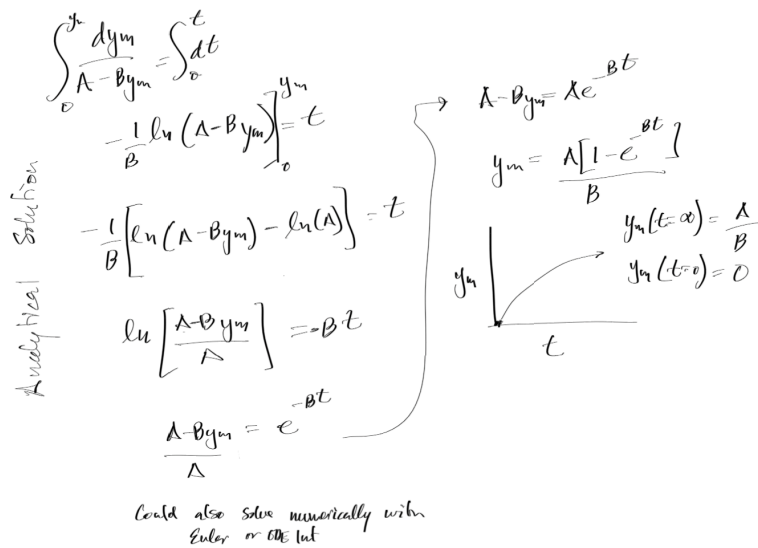 Analytical Solution
∫₀^{ym} dym/(A - Bym) = ∫₀^t dt
-1/B ln (A - Bym)]₀^{ym} = t
-1/B [ln (A - Bym) - ln (A)] = t
ln [(A - Bym)/A] = -Bt
(A - Bym)/A = e^{-Bt}
Could also solve numerically with
Euler or ODE Int
A - Bym = Ae^{-Bt}
ym = A[1 - e^{-Bt}]/B
ym(t=∞) = A/B
ym(t=0) = 0
ym
t